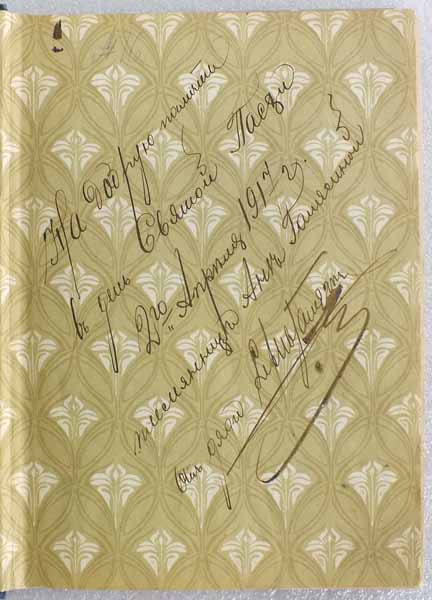 На добрую память
въ день Святой Пасхи
2го Апреля 1917 г.
племянницѣ Анѣ
отъ дяди